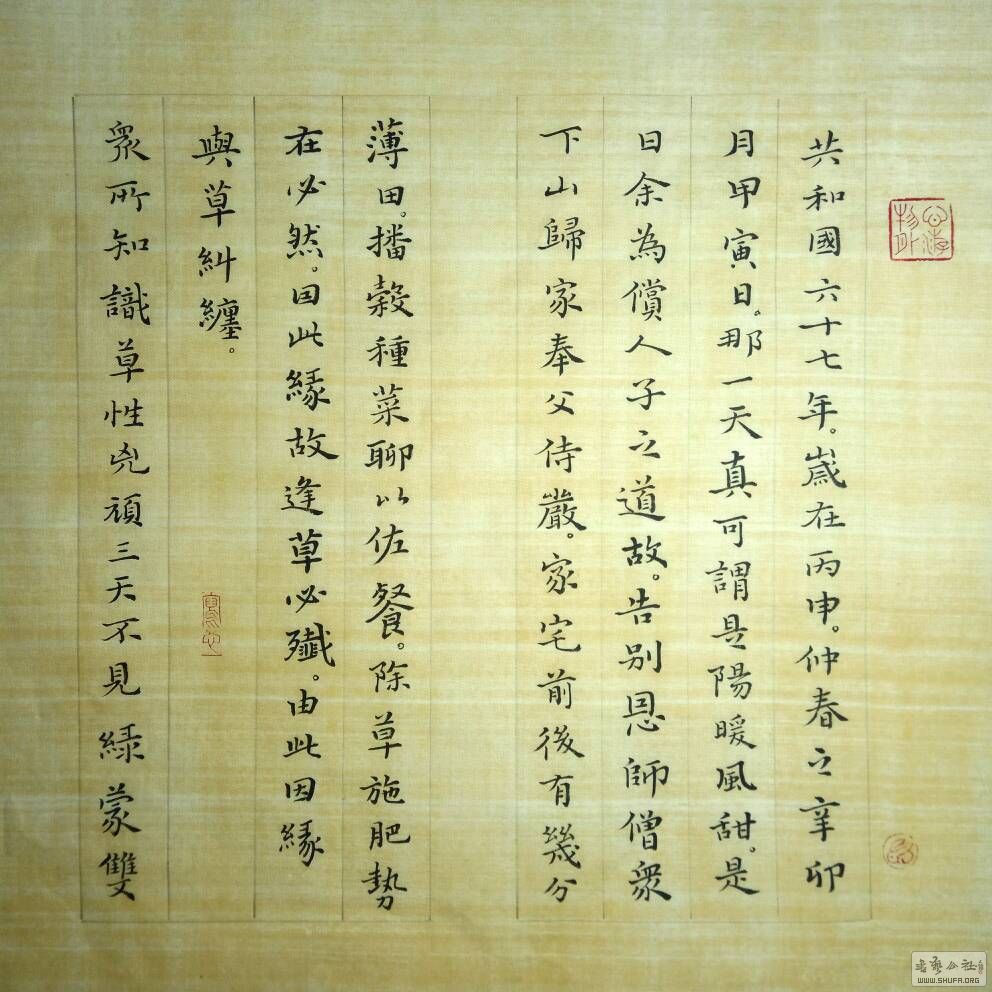 共和國六十七年。歲在丙申。仲春之辛卯
月甲寅日。那一天真可謂是陽暖風甜。是
日余為償人子之道故。告別恩師僧衆
下山歸家奉父侍嚴。家宅前後有幾分
薄田。播穀種菜聊以佐餐。除草施肥勢
在必然。因此緣故逢草必殲。由此因緣
與草糾纏。
衆所知識草性兇頑三天不見綠蒙雙
WWW.SHUFA.ORG